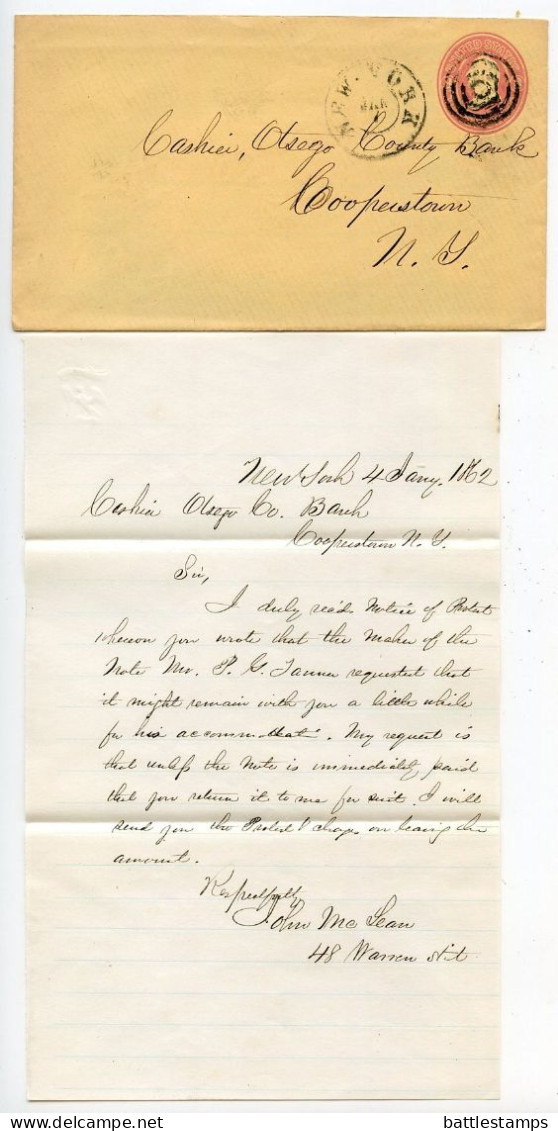 NEW-YORK
JAN
Cashier, Otsego County Bank
Cooperstown
N. Y.
New York 4 Jany. 1862
Cashier Otsego Co. Bank
Cooperstown N. Y.
Sir,
I duly recd Notice of Protest
whereon you wrote that the maker of the
Note Mr. P. G. Tanner requested that
it might remain with you a little while
for his accommodation. My request is
that unless the Note is immediately paid
that you return it to me for suit. I will
send you the Protest charges on learing the
amount.
Respectfully
John McLean
48 Warren St.
delcampe.net
battlestamps